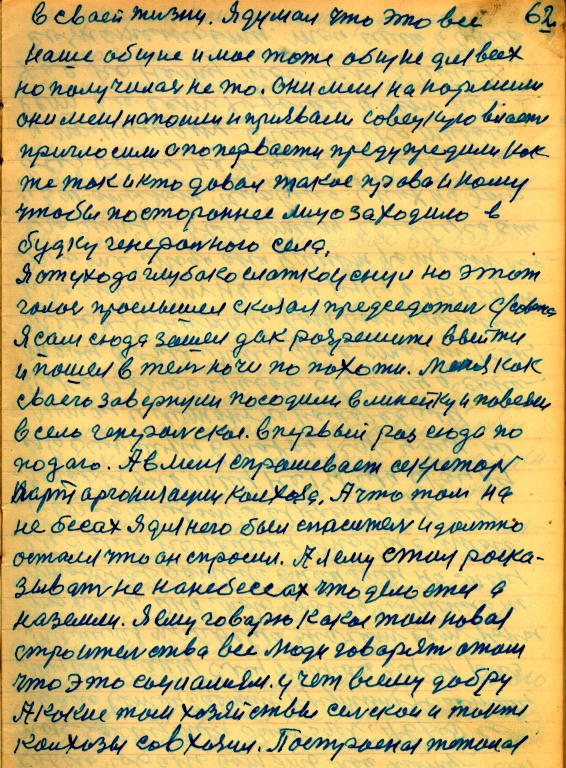 в своей жизни. Я думал что это все 62
наше общие и мое тоже общие для всех
но получилая не то. Они меня накормили
они меня напоили и призвали советскую власть
пригласили спопервасти предупредили как
же так и кто давал такое права и кому
чтобы постороннее лицо заходило в
будку генеральского села.
Я от ухода глубако слатко уснул но этот
голос прослышел сказал председател с/совета
Я сам сюда зашел дак разрешите выйти
и пошел в темь ночи по пахоти. Меня как
своего завернули посодили в линейку и повезли
в село генеральская. в первый раз сюда по
подаю. А в меня спрашевает секретарь
Парт арганизации колхоза. А что там на
не бесах Я для него был спасителем и должно
остался что он спросил. А я ему стал расска-
зывать не нанебессах что делается а
на земли. Я ему говарю какая там новая
строительства все люди говарят о том
что это социализм. учет всему добру
А какие там хозяйствы сельской и также
колхозы совхозы. Построеная такая